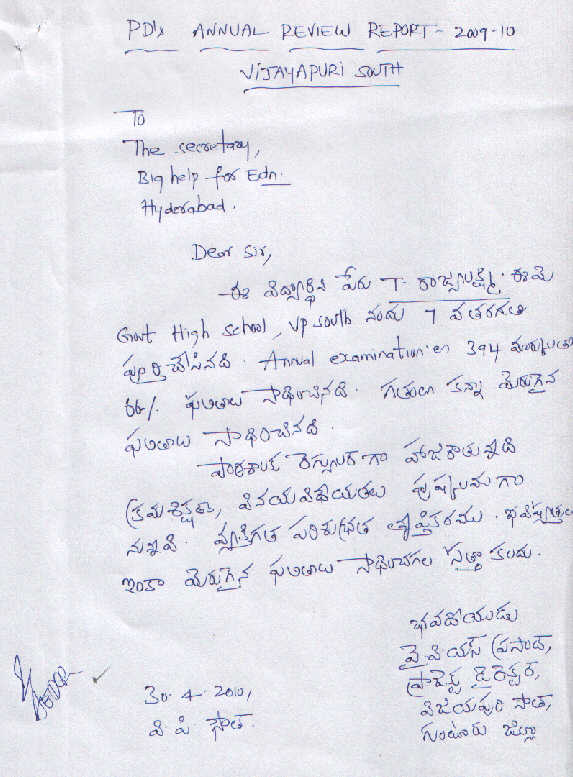 PD's ANNUAL REVIEW REPORT - 2009-10
VIJAYAPURI SOUTH
To
The secretary,
Big help for Edn.
Hyderabad.
Dear sir,
ఈ విద్యార్థిని పేరు T. రాజ్యలక్ష్మి. ఈమె
Govt High school, VP south నందు 7 వ తరగతి
పూర్తి చేసినది. Annual examination'లో 394 మార్కులతో
66% ఫలితాలు సాధించినది. గతంలో కన్నా మెరుగైన
ఫలితాలు సాధించినది.
పాఠశాలకి రెగ్యులర్ గా హాజరౌతున్నది
క్రమశిక్షణ, వినయవిధేయతలు పుష్కలముగా
నున్నవి. వ్యక్తిగత పరిశుభ్రత తృప్తికరము. భవిష్యత్తులో
ఇంకా మెరుగైన ఫలితాలు సాధించగల సత్తా కలదు.
భవదీయుడు
వై వి యస్ ప్రసాద్,
ప్రాజెక్టు డైరెక్టర్,
విజయపురి సౌత్,
గుంటూరు జిల్లా
30-4-2010,
వి పి సౌత్.